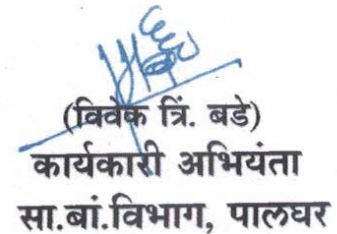 (विवेक त्रिं. बडे)
कार्यकारी अभियंता
सा.बां.विभाग, पालघर